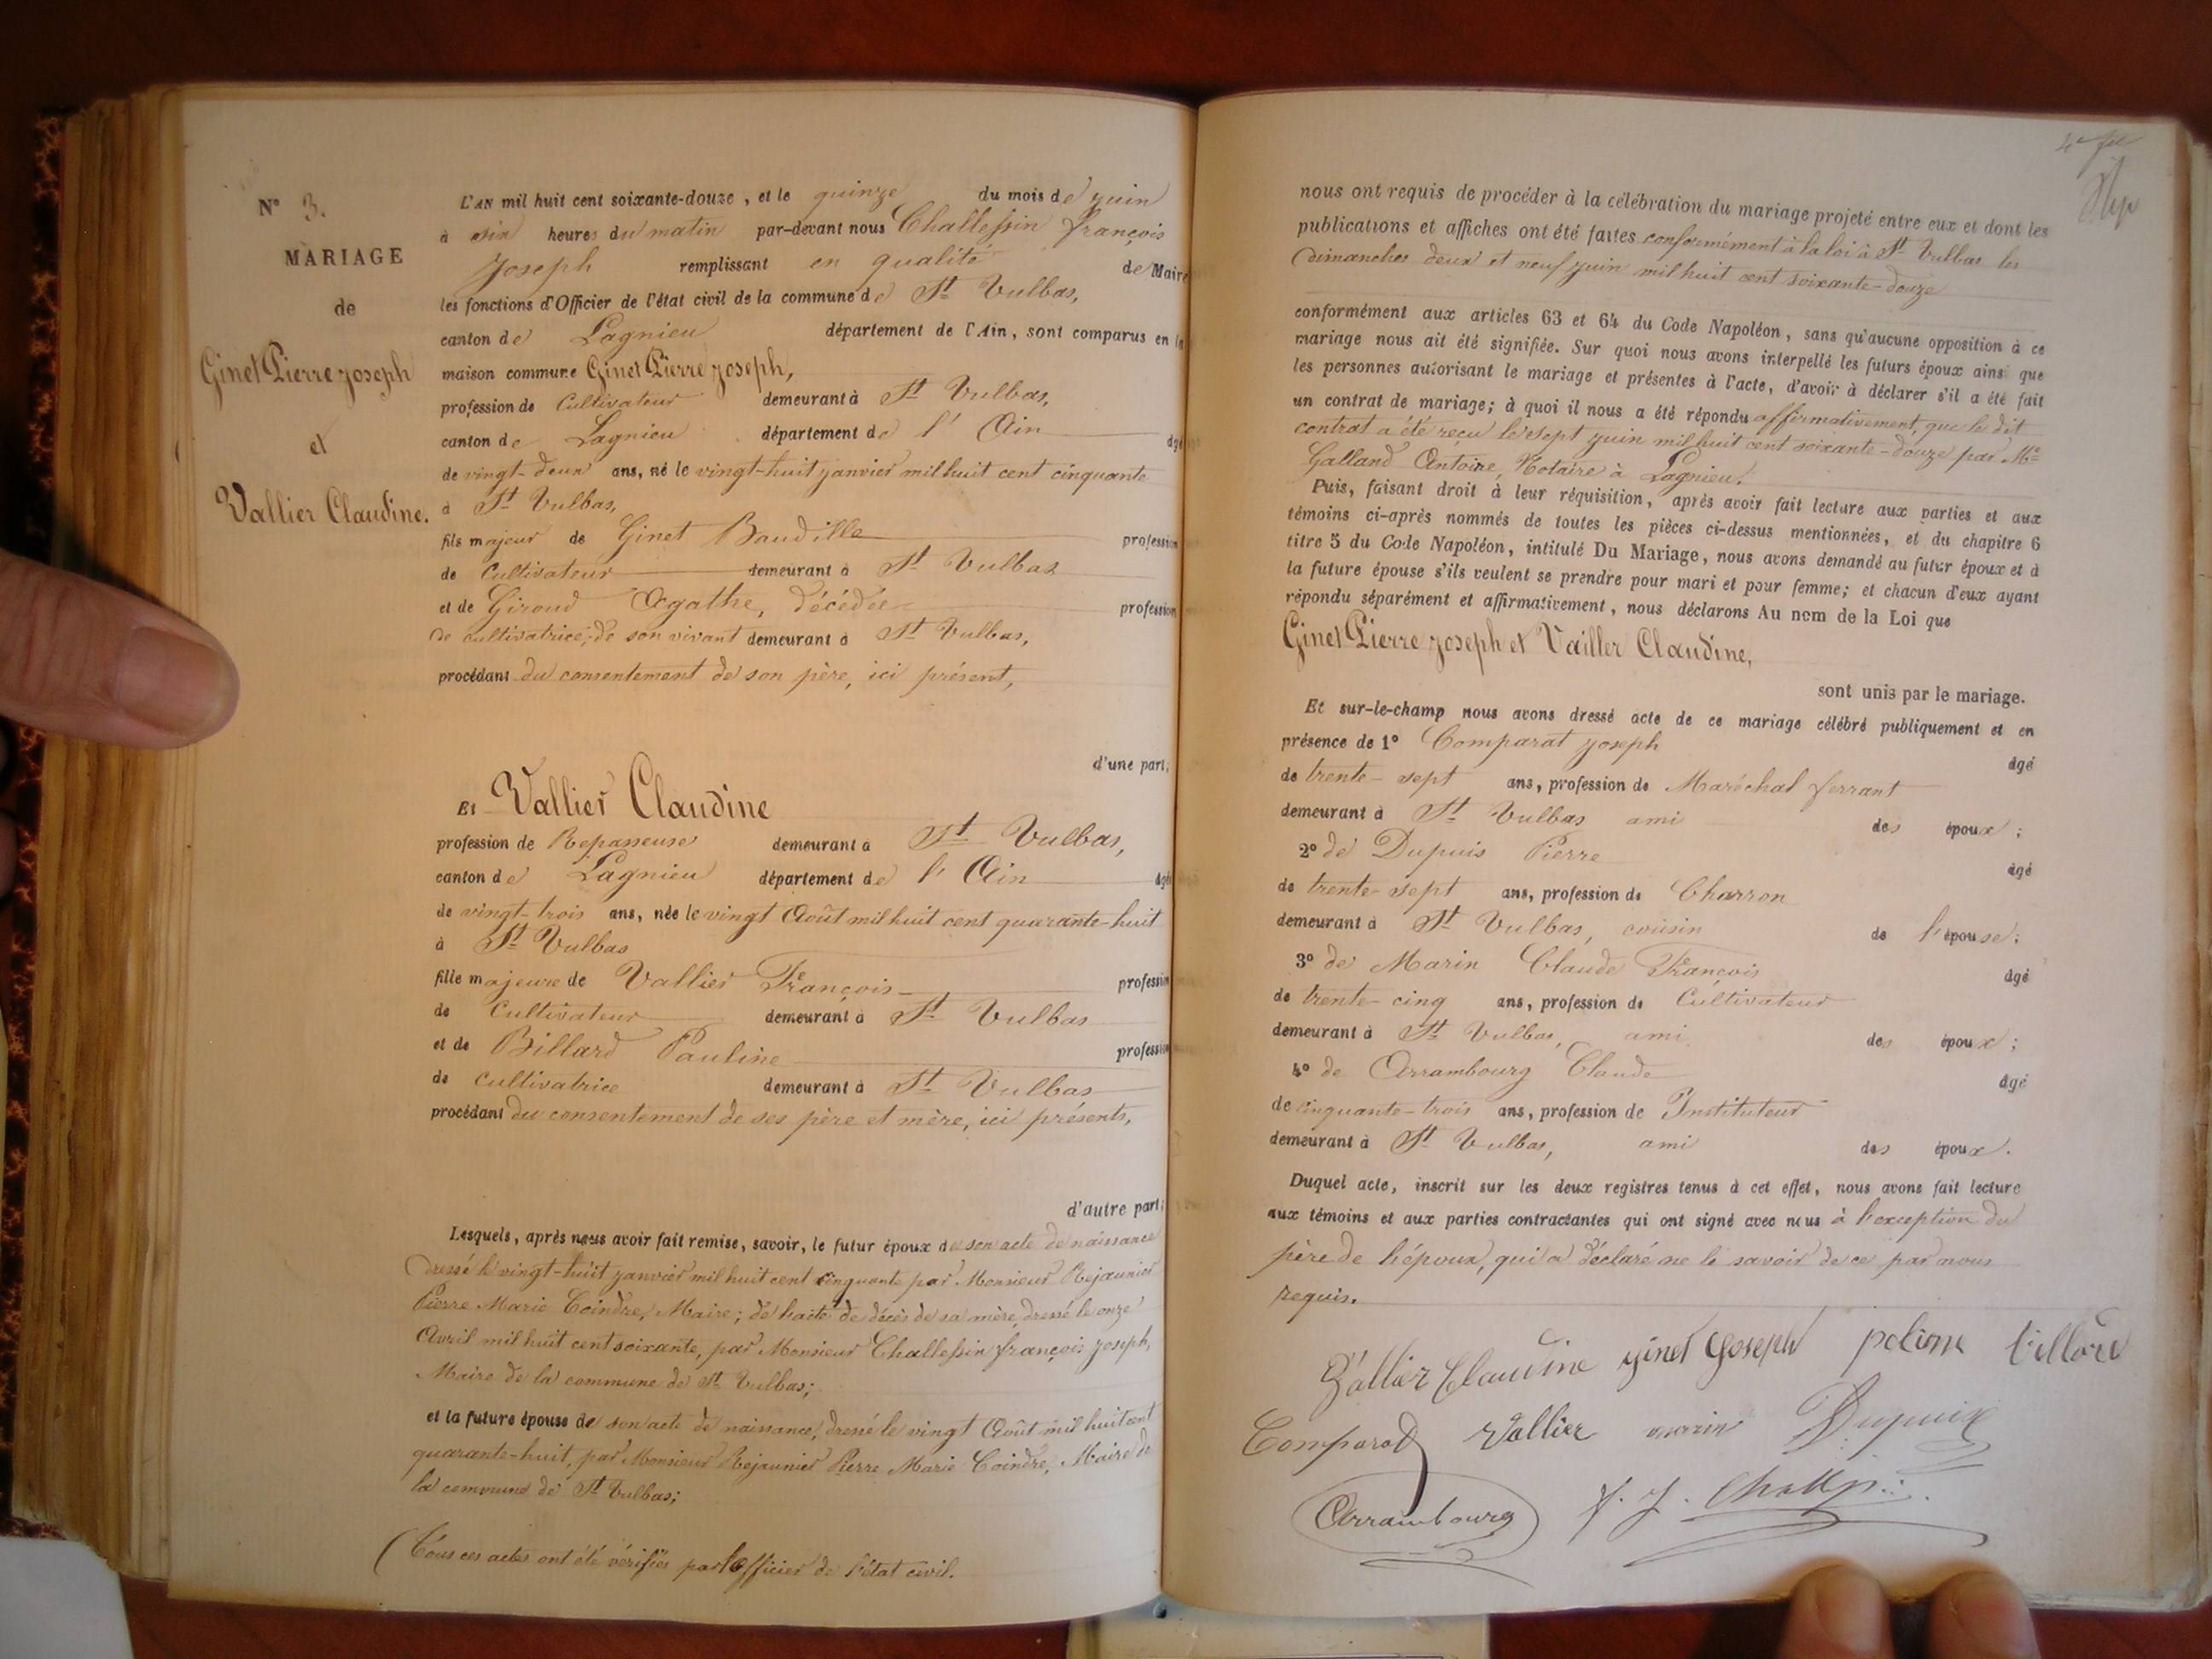 N° 3.
MARIAGE
de
Ginet Pierre Joseph
et
Vallier Claudine.
L'AN mil huit cent soixante-douze, et le quinze du mois de juin
à six heures du matin par-devant nous Challessin françois
Joseph remplissant en qualité de Maire
les fonctions d'Officier de l'état civil de la commune de St Vulbas,
canton de Lagnieu département de l'Ain, sont comparus en la
maison commune Ginet Pierre Joseph,
profession de Cultivateur demeurant à St Vulbas,
canton de Lagnieu département de l'Ain âgé
de vingt-deux ans, né le vingt-huit janvier mil huit cent cinquante
à St Vulbas,
fils majeur de Ginet Baudille profession
de Cultivateur demeurant à St Vulbas
et de Giroud Agathe, décédée profession
de cultivatrice, de son vivant demeurant à St Vulbas,
procédant du consentement de son père, ici présent,
d'une part;
Et Vallier Claudine
profession de Repasseuse demeurant à St Vulbas,
canton de Lagnieu département de l'Ain âgé
de vingt-trois ans, née le vingt Août mil huit cent quarante-huit
à St Vulbas
fille majeure de Vallier François profession
de Cultivateur demeurant à St Vulbas
et de Billard Pauline profession
de cultivatrice demeurant à St Vulbas
procédant du consentement de ses père et mère, ici présents,
d'autre part;
Lesquels, après nous avoir fait remise, savoir, le futur époux de son acte de naissance
dressé le vingt-huit janvier mil huit cent cinquante par Monsieur Rejaunier
Pierre Marie Coindre, Maire; de l'acte de décès de sa mère, dressé le onze
Avril mil huit cent soixante, par Monsieur Challessin françois Joseph,
Maire de la commune de St Vulbas;
et la future épouse de son acte de naissance, dressé le vingt Août mil huit cent
quarante-huit, par Monsieur Rejaunier Pierre Marie Coindre, Maire de
la commune de St Vulbas;
Tous ces actes ont été vérifiés par l'Officier de l'état civil.
nous ont requis de procéder à la célébration du mariage projeté entre eux et dont les
publications et affiches ont été faites conformément à la loi à St Vulbas les
dimanches deux et neuf juin mil huit cent soixante-douze
conformément aux articles 63 et 64 du Code Napoléon, sans qu'aucune opposition à ce
mariage nous ait été signifiée. Sur quoi nous avons interpellé les futurs époux ainsi que
les personnes autorisant le mariage et présentes à l'acte, d'avoir à déclarer s'il a été fait
un contrat de mariage; à quoi il nous a été répondu affirmativement, que le dit
contrat a été reçu le sept juin mil huit cent soixante-douze par Me
Galland Antoine, Notaire à Lagnieu.
Puis, faisant droit à leur réquisition, après avoir fait lecture aux parties et aux
témoins ci-après nommés de toutes les pièces ci-dessus mentionnées, et du chapitre 6
titre 5 du Code Napoléon, intitulé Du Mariage, nous avons demandé au futur époux et à
la future épouse s'ils veulent se prendre pour mari et pour femme; et chacun d'eux ayant
répondu séparément et affirmativement, nous déclarons Au nom de la Loi que
Ginet Pierre Joseph et Vailler Claudine,
sont unis par le mariage.
Et sur-le-champ nous avons dressé acte de ce mariage célébré publiquement et en
présence de 1° Comparat Joseph âgé
de trente-sept ans, profession de Maréchal ferrant
demeurant à St Vulbas ami des époux;
2° de Dupuis Pierre âgé
de trente-sept ans, profession de Charron
demeurant à St Vulbas, cousin de l'épouse;
3° de Marin Claude François âgé
de trente-cinq ans, profession de Cultivateur
demeurant à St Vulbas, ami des époux;
4° de Arrambourg Claude âgé
de cinquante-trois ans, profession de Instituteur
demeurant à St Vulbas, ami des époux.
Duquel acte, inscrit sur les deux registres tenus à cet effet, nous avons fait lecture
aux témoins et aux parties contractantes qui ont signé avec nous à l'exception du
père de l'époux, qui a déclaré ne le savoir de ce par nous
requis.
Vallier Claudine ginet joseph poline billard
Comparat Vallier marin Dupuis
Arrambourg f. J. Challessin